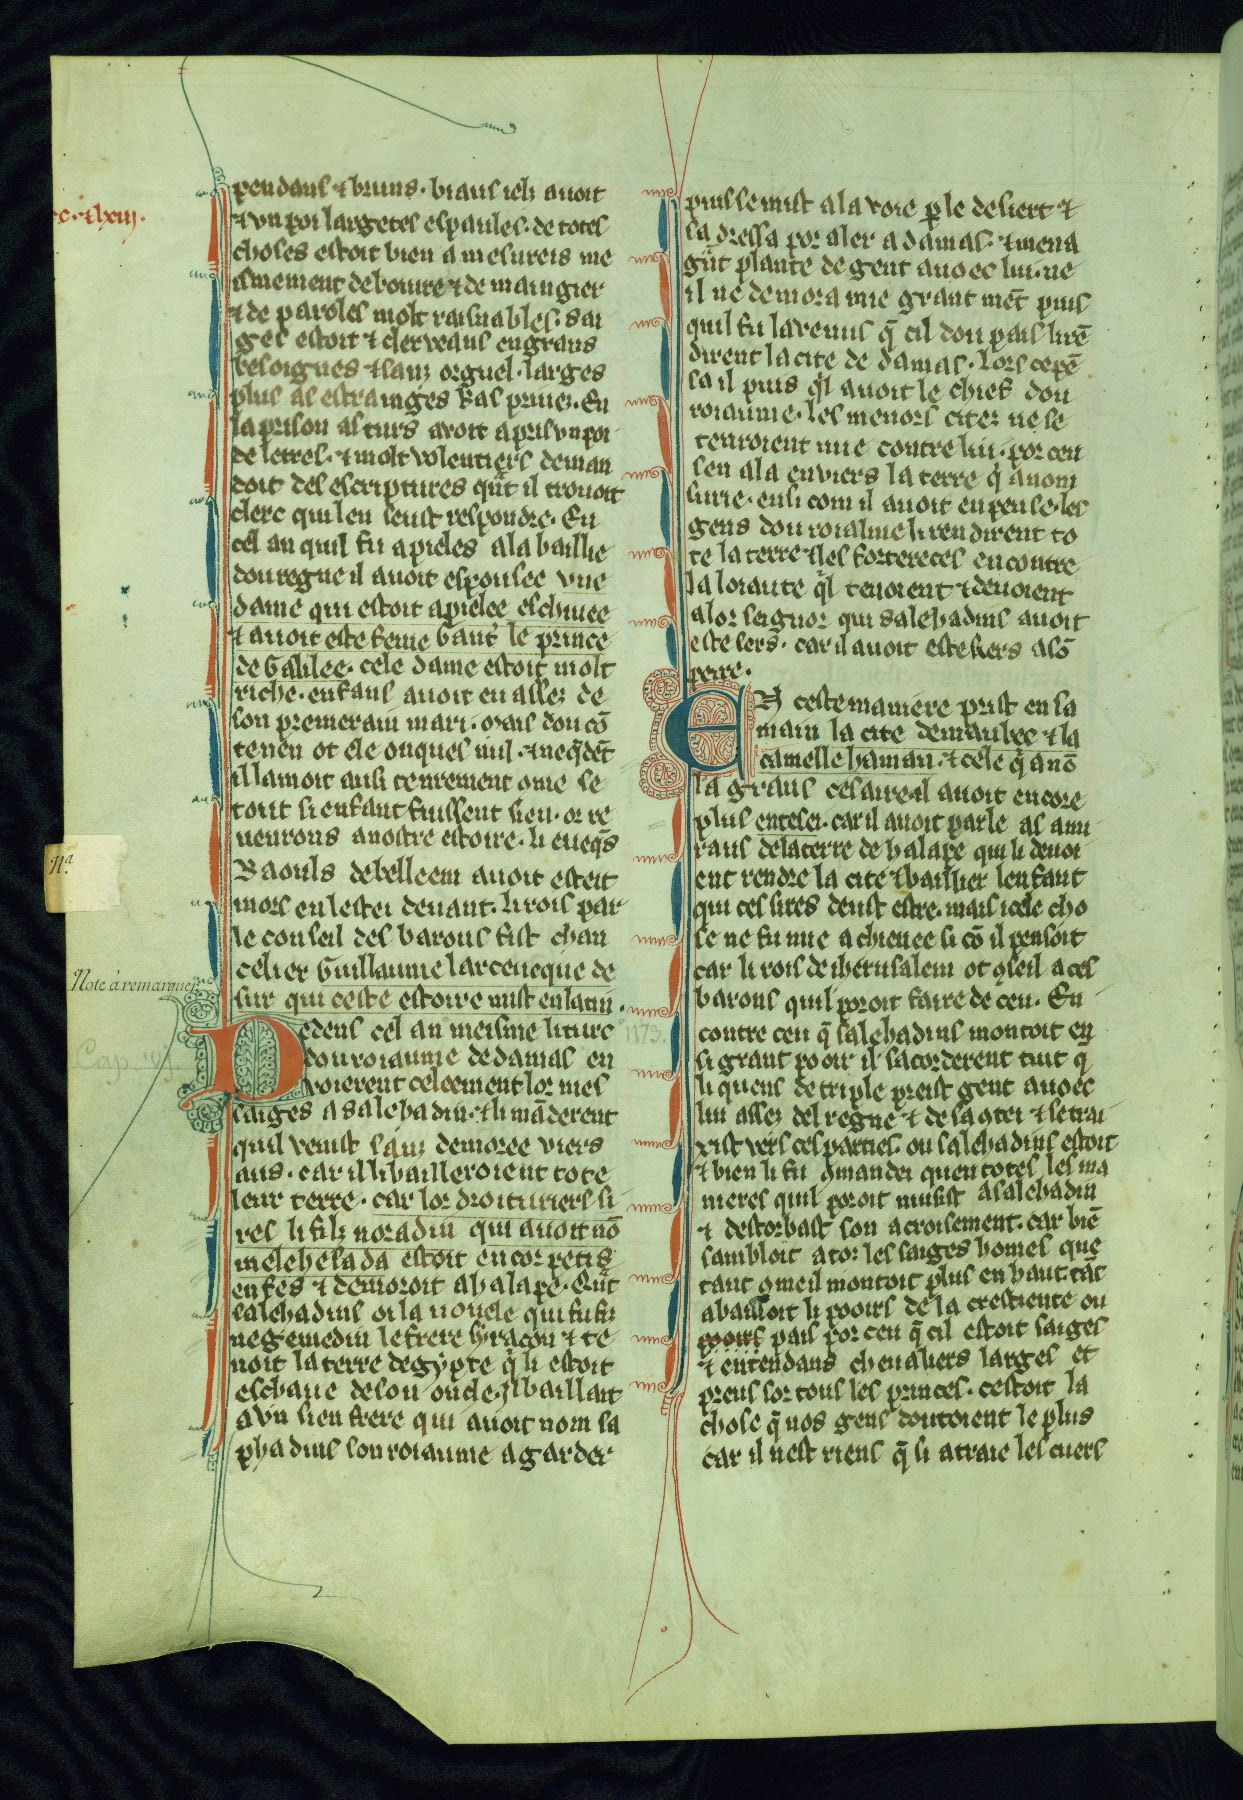 .c.⁊lxiij.
pendans ⁊ bruns. biaus ielz auoit
⁊ vn poi largetes espaules. de totes
choses estoit bien amesureis me
ismement de boiure ⁊ de maingier
⁊ de paroles molt raisnables. sai
ges estoit ⁊ clerveans en grans
besoignes ⁊ sanz orguel. larges
plus as estrainges kas priuez. En
la prison as turs avoit apris vn poi
de letres. ⁊ molt volentiers deman
doit des escriptures qu̇t il trouoit
clerc qui len seust respondre. En
cel an quil fu apieles a la baillie
dou regne il auoit espousee vne
dame qui estoit apielee eschiuee
⁊ auoit este feme Gaut' le prince
de Galilee. cele dame estoit molt
riche. enfans auoit eu assez de
son premerain mari. Mais dou cō
te nen ot ele onques nul. ⁊ neq̇dēt
il lamoit ausi tenrement ɔme se
tout si enfant fuissent sien. or re
uenrons a nostre estoire. li eueq̄s
Raouls de belleem auoit esteit
mors en lestei deuant. li rois par
le conseil des barons fist chan
celier Guillaume larceueque de
sur qui ceste estoire mist en latin.
Dedens cel an meisme li turc
dou roiaume de damas en
voierent celeement lor mes
saiges a salehadin. ⁊ li māderent
quil venist sanz demoree viers
aus. car il li bailleroient tote
leur terre. car lor droituriers si
res li filz noradin qui auoit nō
melehesada estoit encor petis
enfes ⁊ demoroit a halape. Qu̇t
salehadins oi la nouele qui fu fiz
negemedin le frere syracon ⁊ te
noit la terre degypte q̇ li estoit
eschaue de son oncle. Il bailla it
a vn sien frere qui auoit nom sa
phadins son roiaume a garder
Nᵃ
Note à remarquer
Cap.
1173.
puis se mist a la voie ꝑ le desiert ⁊
sa dressa por aler a damas. ⁊ mena
gn̄t plante de gent auoec lui. ne
il ne demora mie grant mēt puis
quil fu la venus q̄ cil dou pais li rē
dirent la cite de damas. Lors se pē
sa il puis q̇l auoit le chief dou
roiaume. les menors citez ne se
tenroient mie contre lui. por ceu
sen ala enviers la terre q̇ a nom
surie. ensi com il auoit en pense. les
gens dou roialme li rendirent to
te la terre ⁊ les forteresces encontre
la loiaute q̇l tenoient ⁊ deuoient
a lor seignor qui salehadins auoit
este sers. car il auoit este siers a sō
perre.
En ceste maniere prist en sa
main la cite de maubec ⁊ la
camelle haman. ⁊ cele q̇ a nō
la grans cesaire. il auoit encore
plus entesei. car il auoit parle as ami
raus de la terre de halape qui li deuoi
ent rendre la cite ⁊ baillier lenfant
qui ces sires deust estre. mais icele cho
se ne fu mie achieuee si cō il pensoit
car li rois de iherusalem ot ɔseil a ces
barons quil poroit faire de ceu. En
contre ceu q̄ salehadins montoit en
si grant pooir il sacorderent tuit q̄
li quens de triple preist gent auoec
lui assez del regne ⁊ de sa ɔtei ⁊ se trai
xist vers ces parties. ou salehadins estoit
⁊ bien li fu ɔmandei quen totes les ma
nieres quil poroit nuisist a salehadin
⁊ destorbast son acroisement. car biē
sambloit a toz les saiges homes que
tant ɔme il montoit plus en haut. tāt
abaissoit li pooirs de la crestiente ou
pooirs pais por ceu q̄ cil estoit saiges
⁊ entendans cheualiers larges et
preus sor tous les princes. cestoit la
chose q̄ nos gens doutoient le plus
car il nest riens q̄ si atraie les cuers